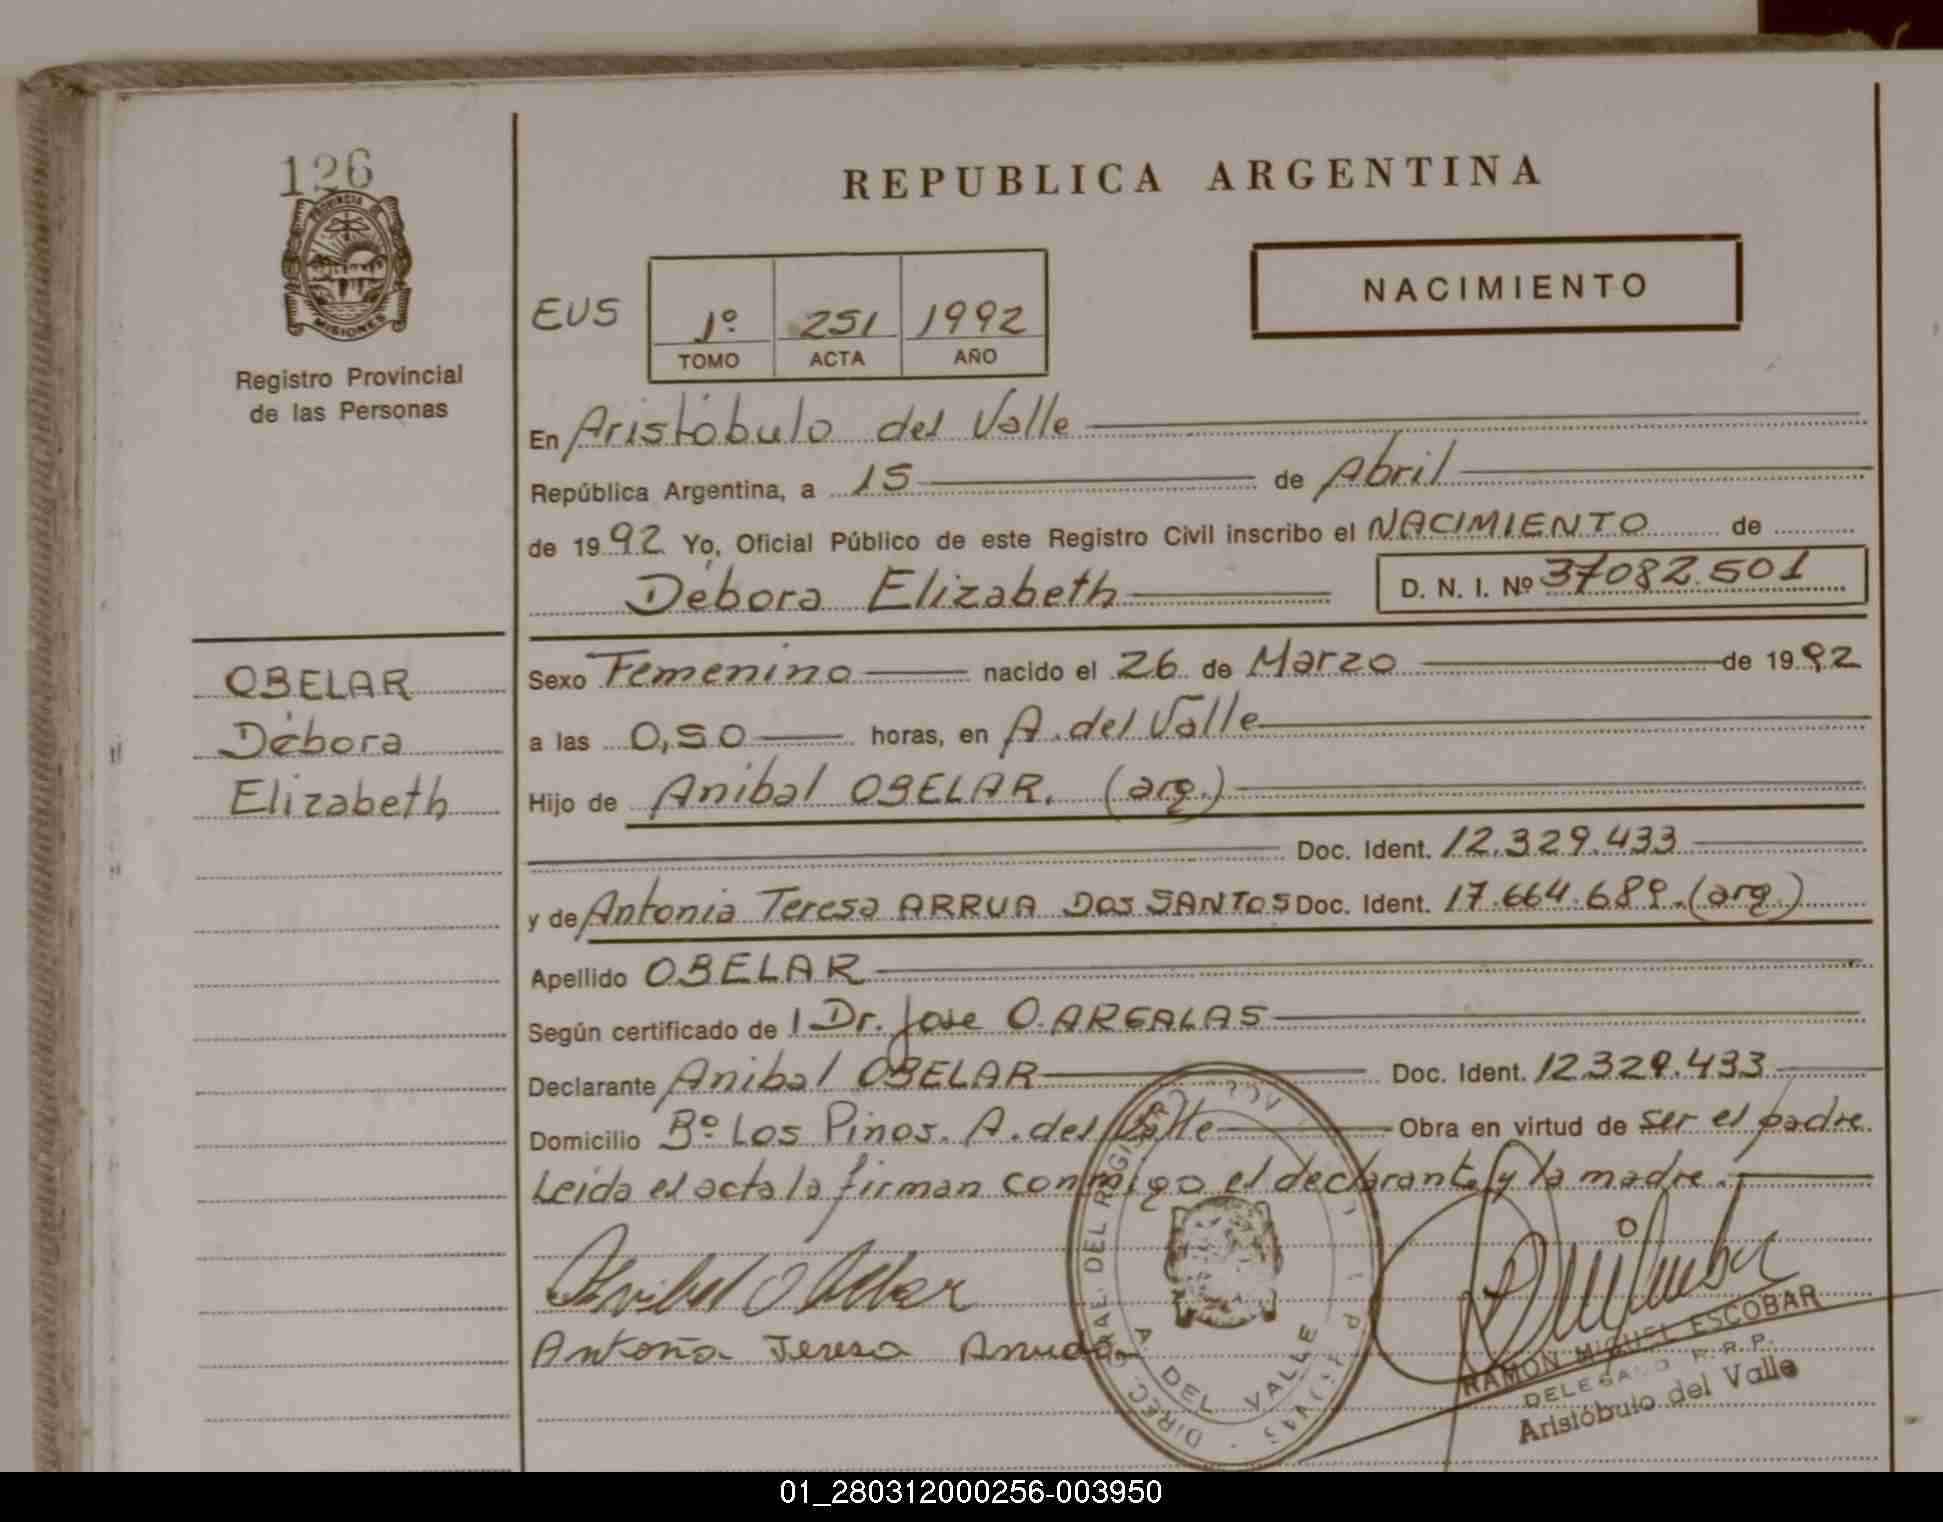 126
PROVINCIA DE
MISIONES
Registro Provincial
de las Personas
REPUBLICA ARGENTINA
NACIMIENTO
EUS
1º 251 1992
TOMO ACTA AÑO
En Aristóbulo del Valle
República Argentina, a 15 de Abril
de 1992 Yo, Oficial Público de este Registro Civil inscribo el NACIMIENTO de
Débora Elizabeth D. N. I. Nº 37082.501
OBELAR
Débora
Elizabeth
Sexo Femenino nacido el 26 de Marzo de 1992
a las 0,50 horas, en A. del Valle
Hijo de Anibal OBELAR. (arg.)
Doc. Ident. 12.329.433
y de Antonia Teresa ARRUA DOS SANTOS Doc. Ident. 17.664.689. (arg.)
Apellido OBELAR
Según certificado de 1 Dr. Jose O. ARGALAS
Declarante Anibal OBELAR Doc. Ident. 12329.433
Domicilio Bº Los Pinos. A. del Valle Obra en virtud de ser el padre
Leida el acta la firman conmigo el declarante y la madre.
Anibal Obelar
Antoña Teresa Arrua
DIREC. GRAE. DEL REGIS
A. DEL VALLE
RAMON MIGUEL ESCOBAR
DELEGADO R. R. P.
Aristóbulo del Valle
01_280312000256-003950